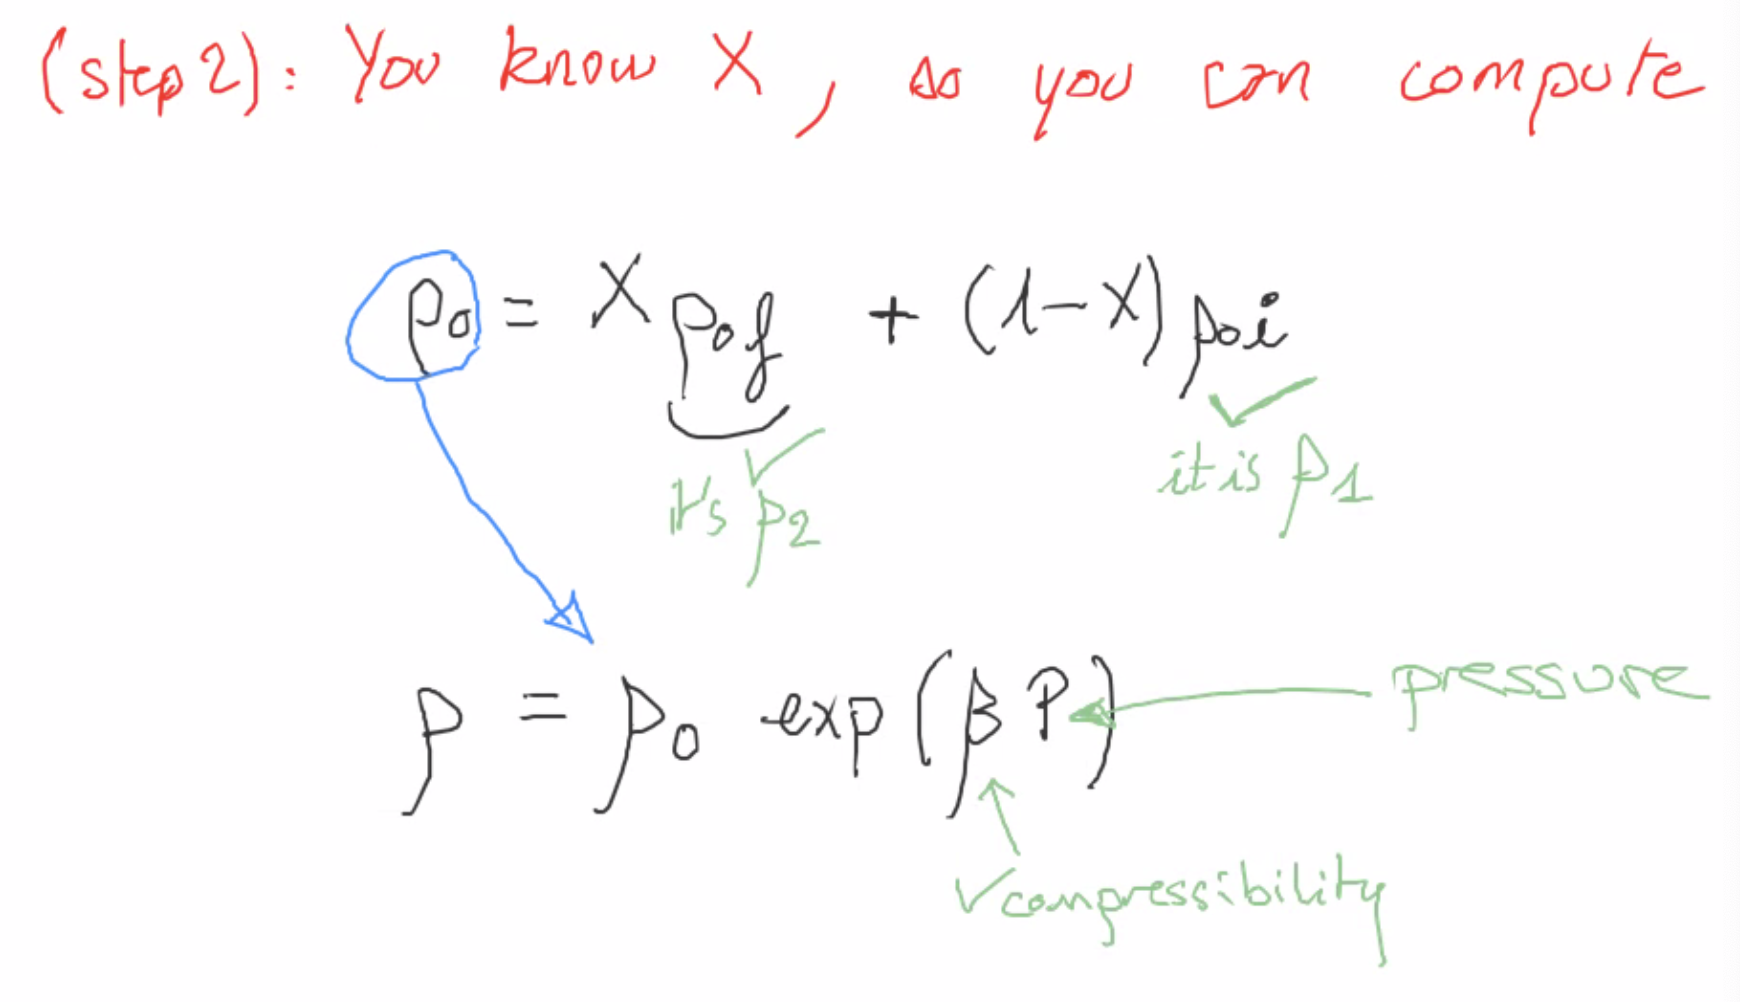 (step 2): You know X, so you can compute
ρ₀ = X ρ₀f + (1-X) ρ₀i
it's ρ2
it is ρ1
ρ = ρ₀ exp(β P)
pressure
compressibility